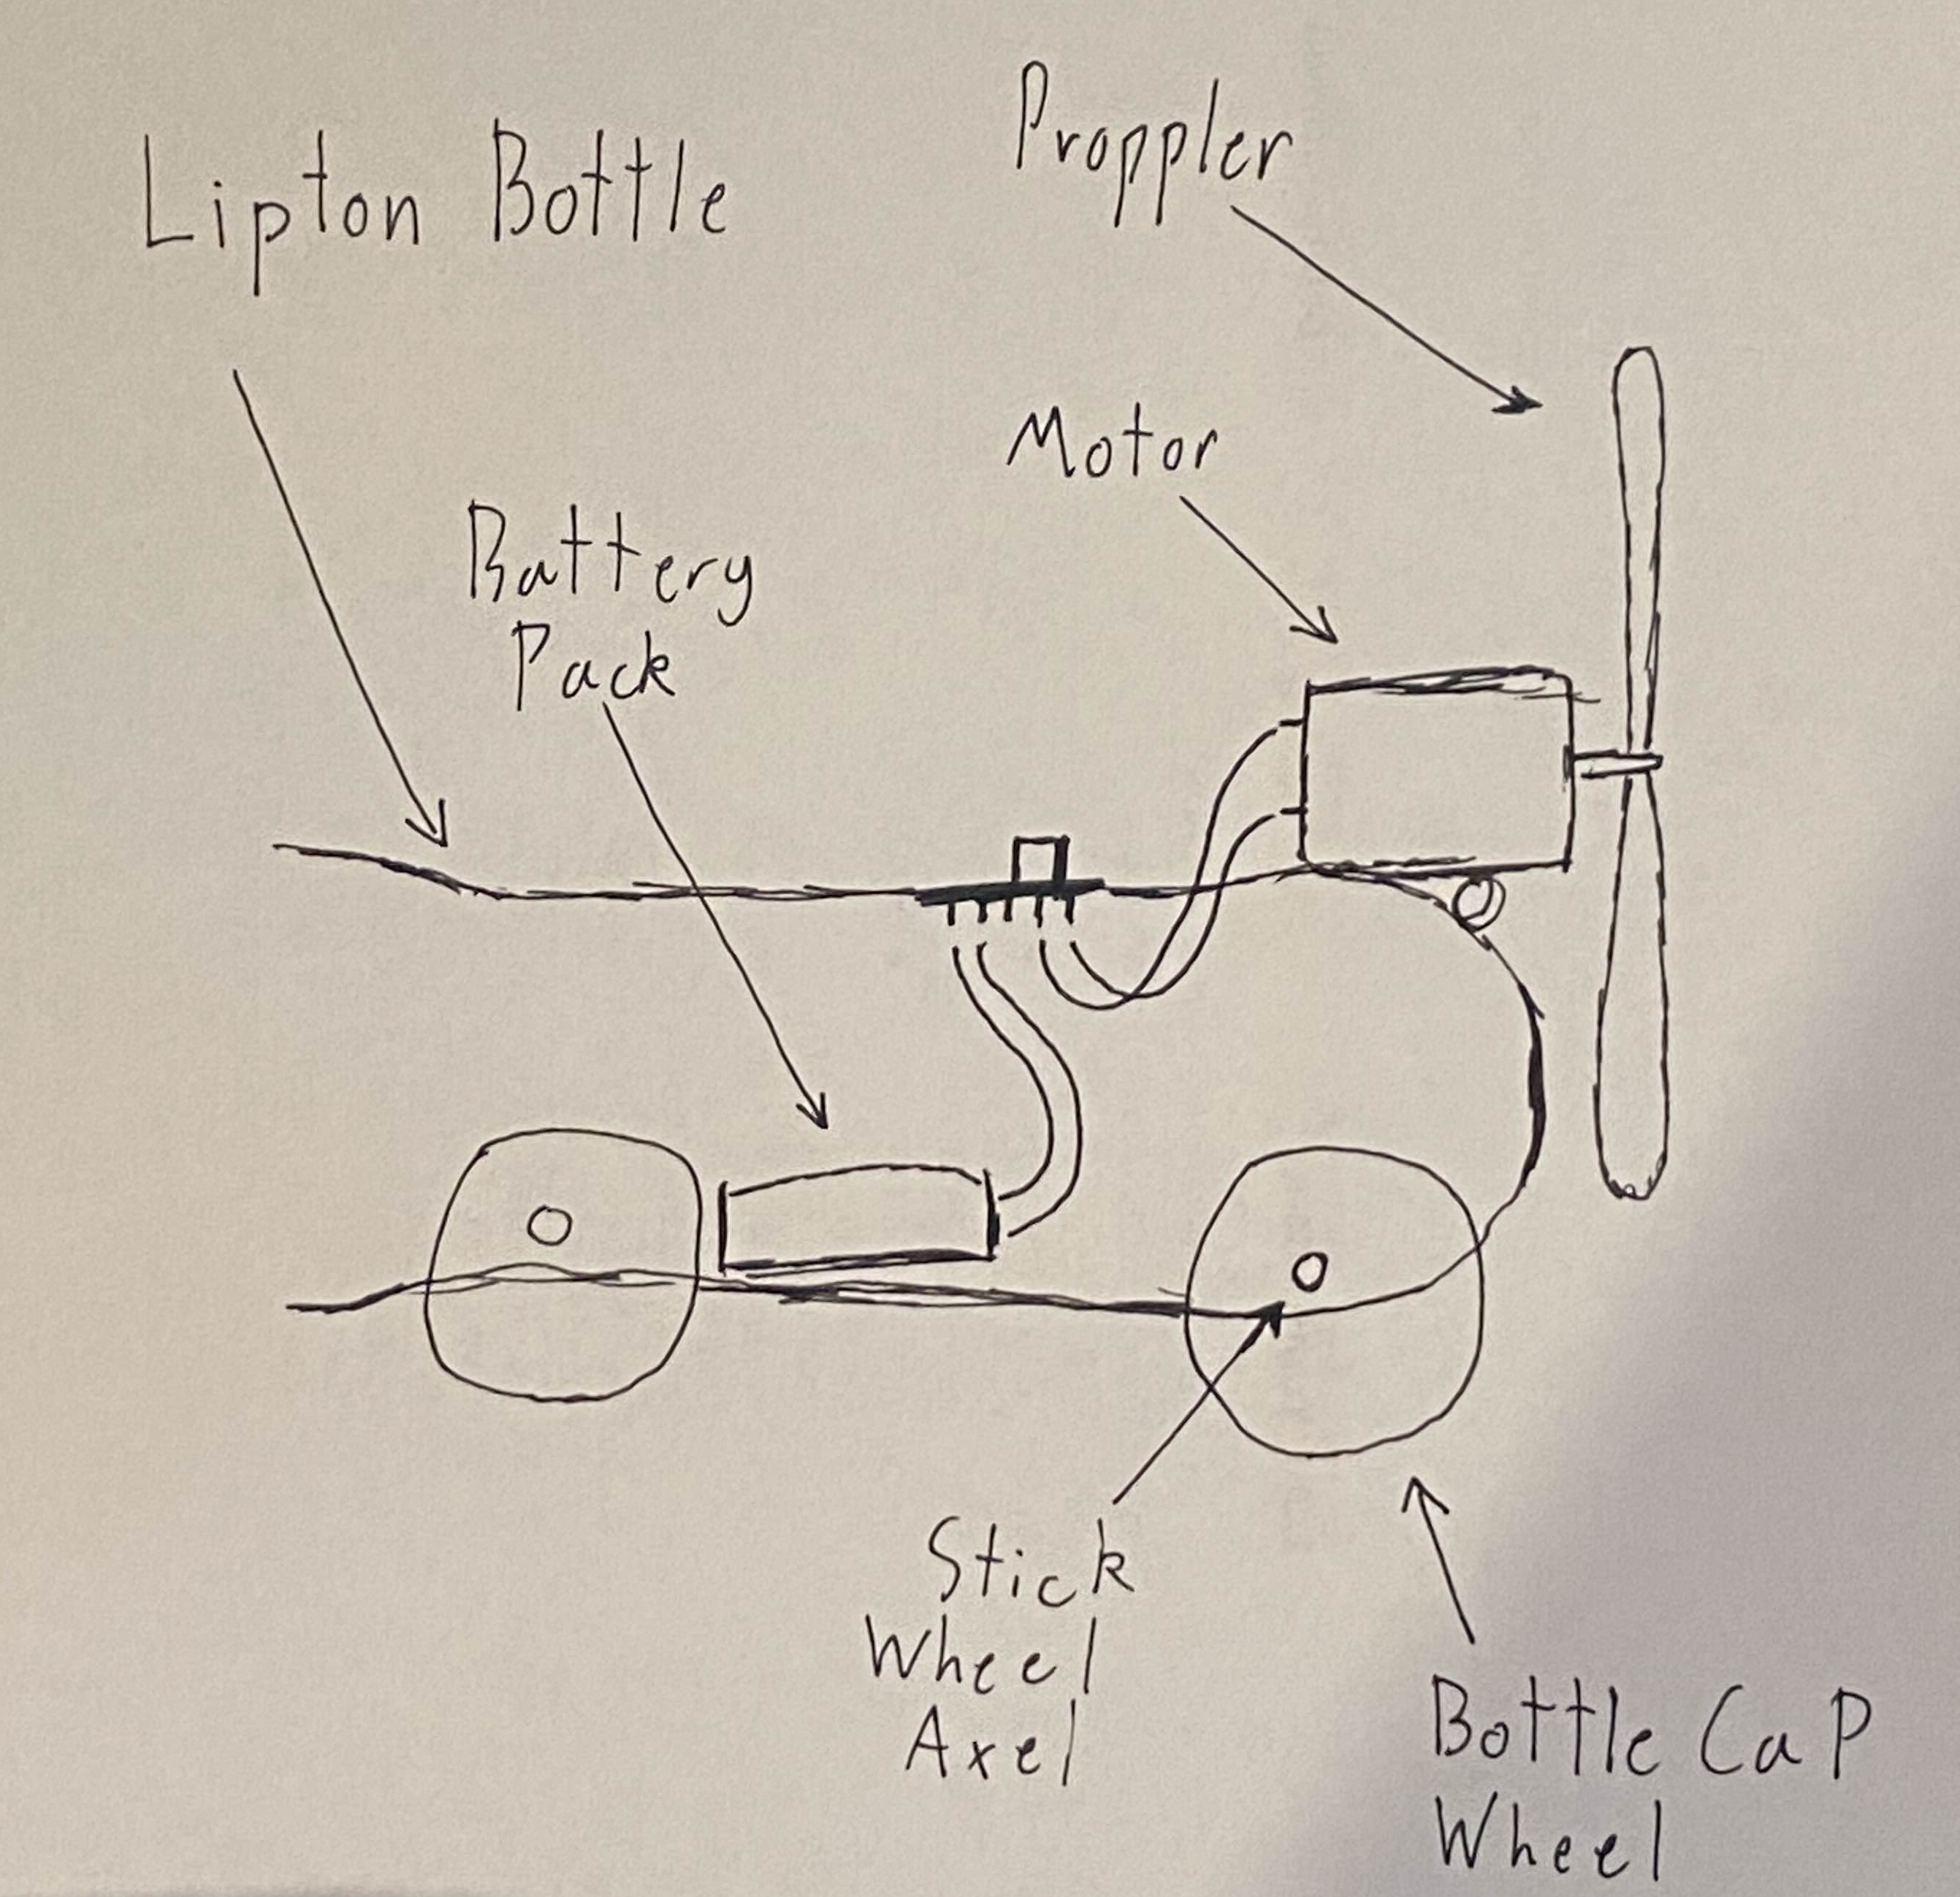 Lipton Bottle
Proppler
Motor
Battery
Pack
Stick
Wheel
Axel
Bottle CaP
Wheel